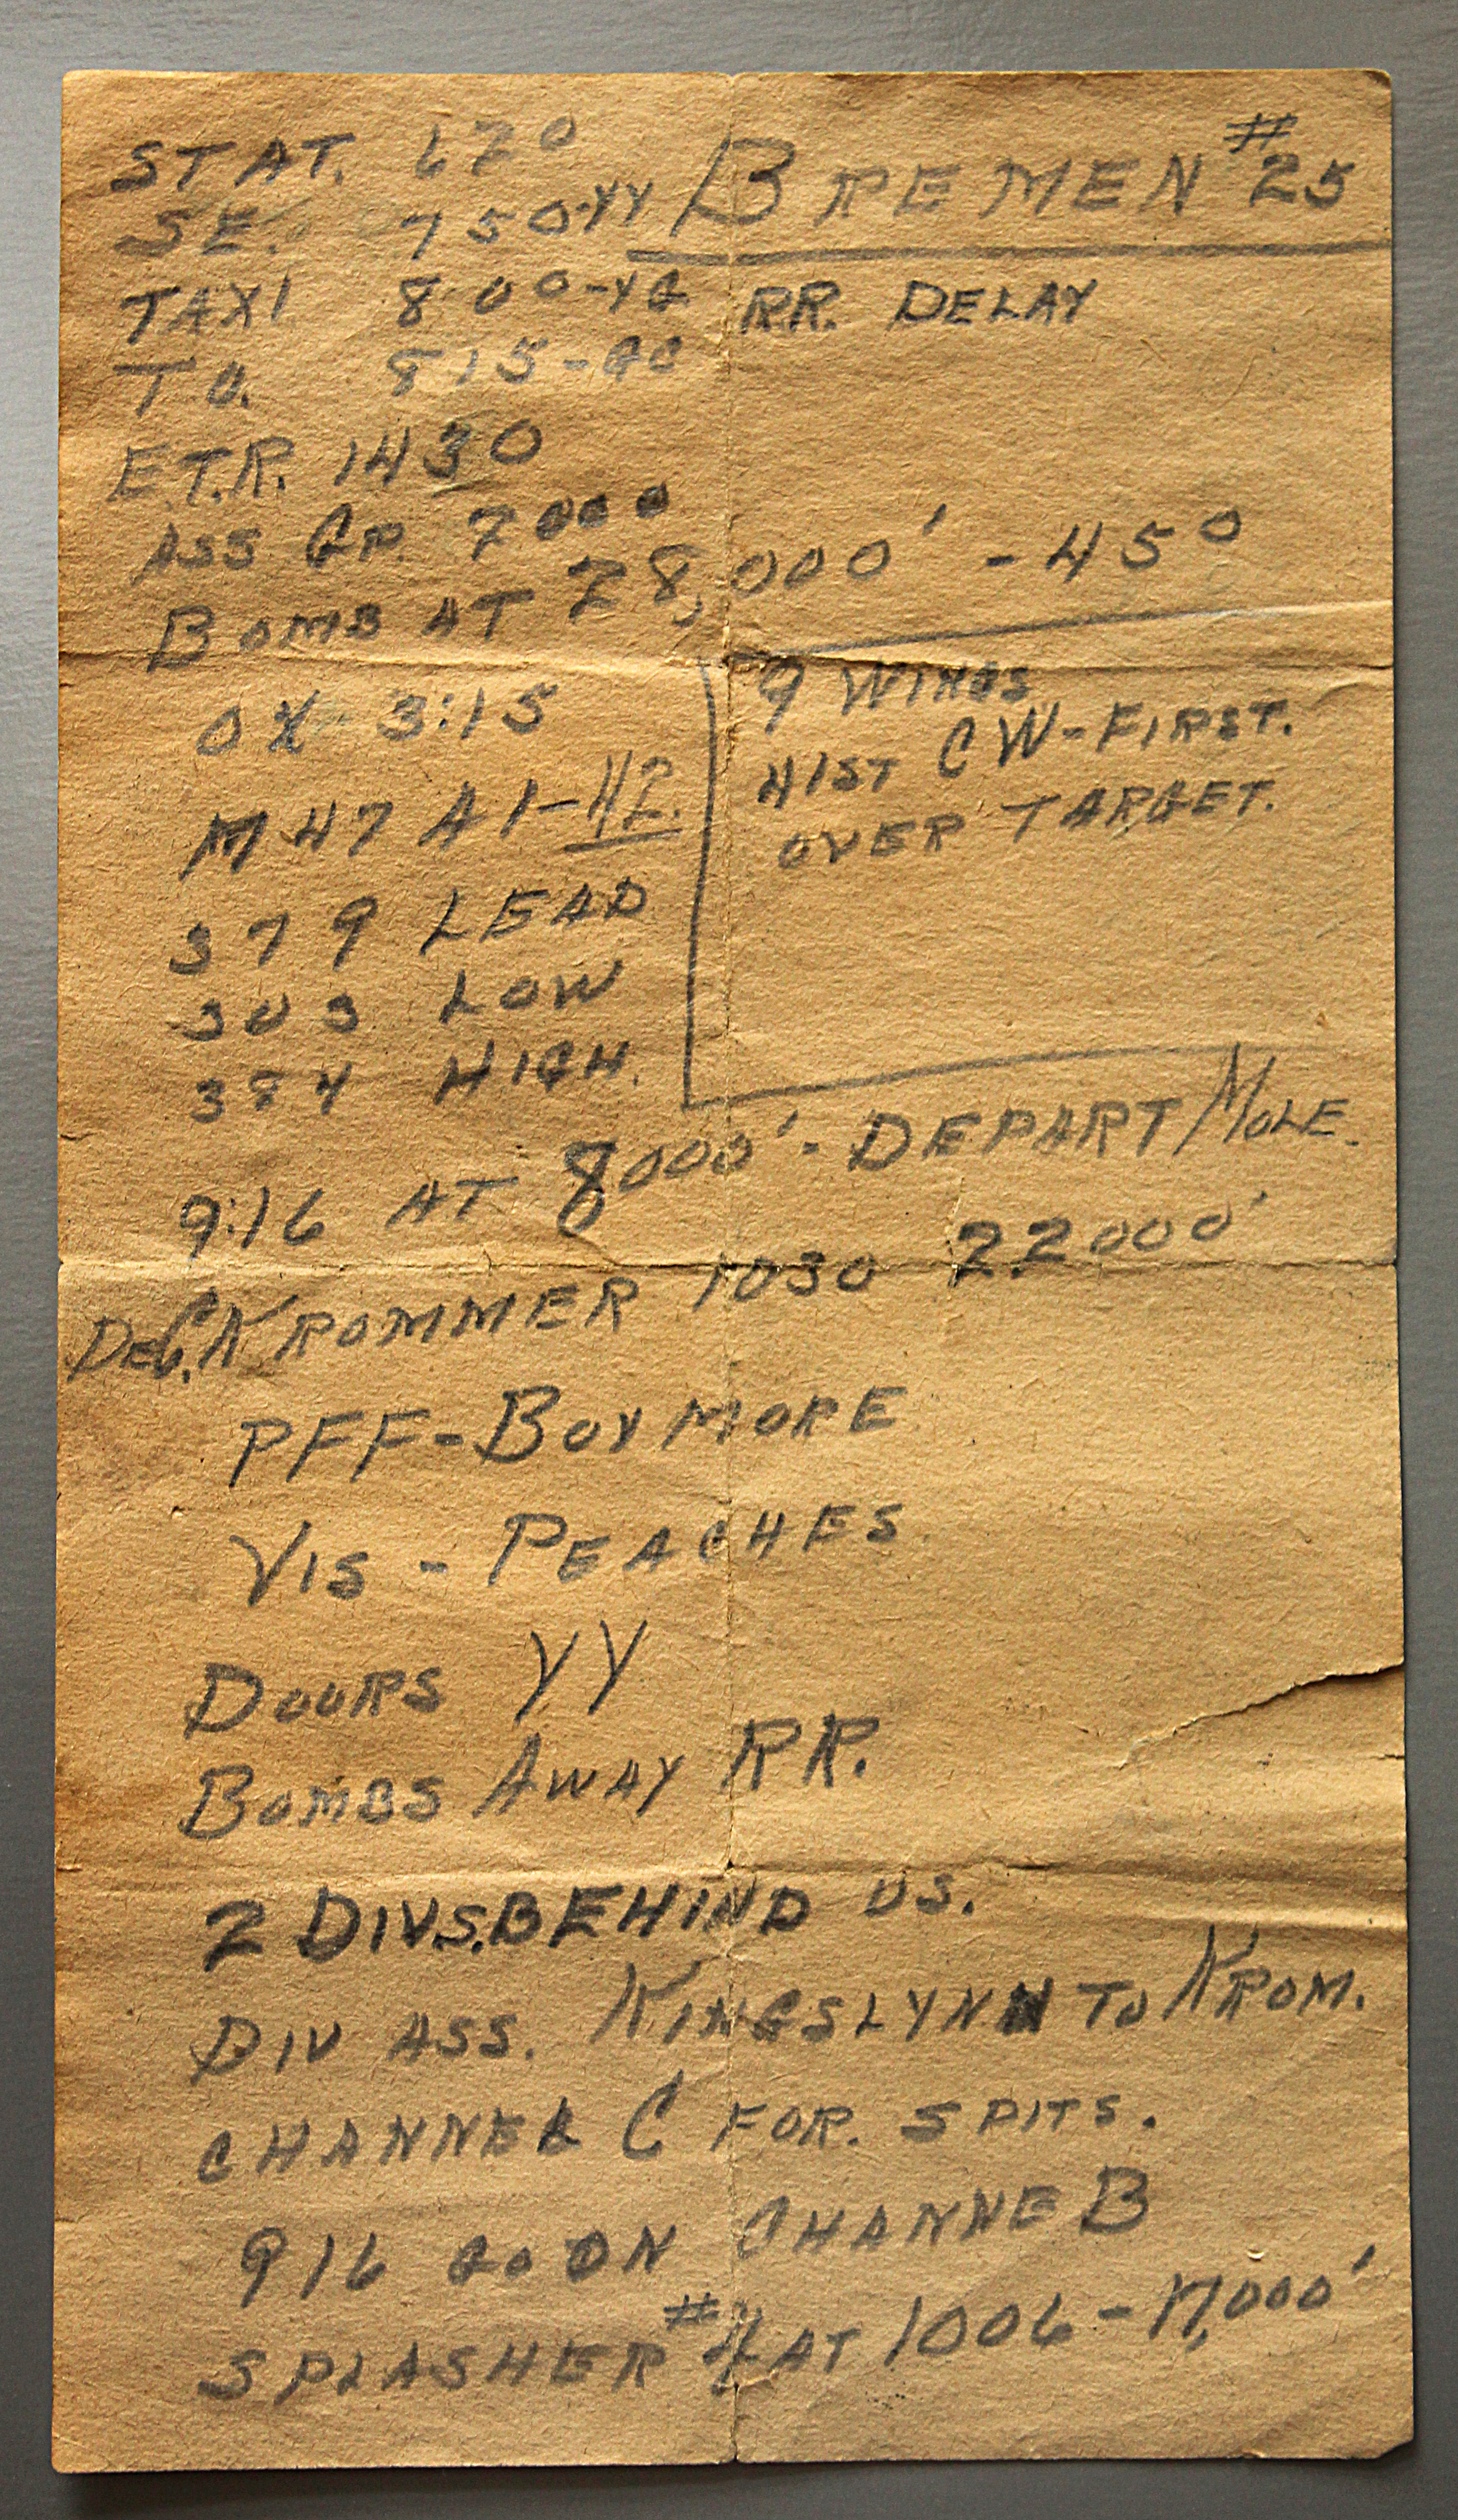 STAT. 670
BREMEN #25
SE. 750-YY
TAXI 800-YG
RR. DELAY
T O. 815-GG
E.T.R. 1430
ASS GP. 7000
BOMB AT 28,000' - 45°
OX 3:15
9 WINGS
41ST CW-FIRST.
OVER TARGET.
M47 A1-
379 LEAD
303 LOW
384 HIGH.
9:16 AT 8000' - DEPART MOLE.
KROMMER 1030 22000'
PFF-BOYMORE
VIS - PEACHES
DOORS YY
BOMBS AWAY RR.
2 DIVS. BEHIND US.
DIV ASS. KINGSLYNN TO KROM.
CHANNEL C FOR. SPITS.
916 GO ON CHANNE B
SPLASHER #4 AT 1006 - 17,000'